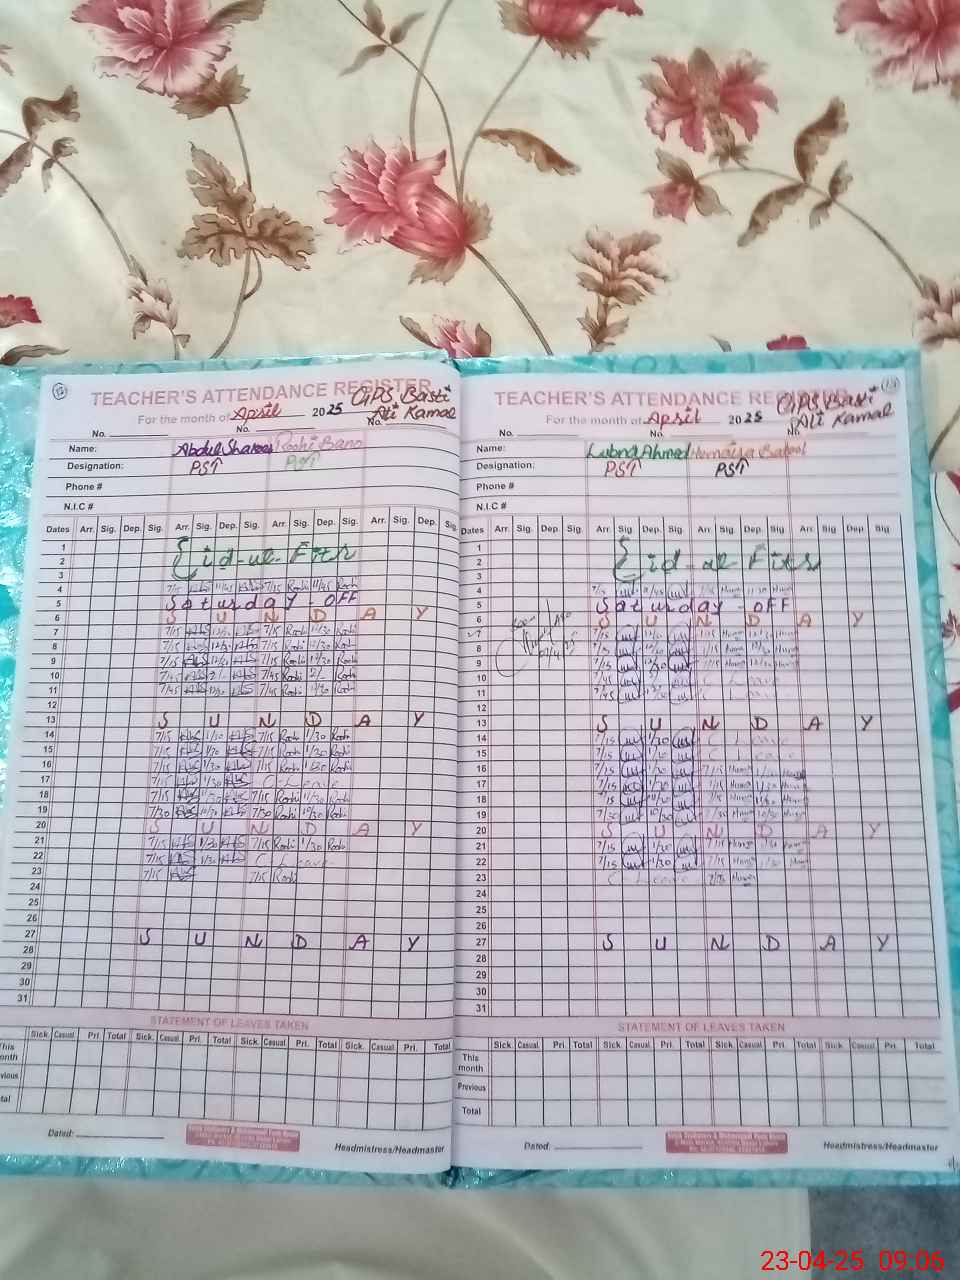 12
TEACHER'S ATTENDANCE REGISTER
GPS Basti
For the month of April 2025
Ali Kamal
No. No. No.
Name: Abdul Shakoor Roohi Bano
Designation: PST PST
Phone #
N.I.C #
Dates Arr. Sig. Dep. Sig. Arr. Sig. Dep. Sig. Arr. Sig. Dep. Sig. Arr. Sig. Dep. Sig.
1
2 Eid-ul-Fitr
3
4 7/15 11/45 7/15 Roohi 11/45 Roohi
5 Saturday - OFF
6 S U N D A Y
7 7/15 12/30 7/15 Roohi 12/30 Roohi
8 7/15 12/30 7/15 Roohi 12/30 Roohi
9 7/15 12/30 7/15 Roohi 12/30 Roohi
10 7/45 2/- 7/45 Roohi 2/- Roohi
11 7/45 7/45 Roohi Roohi
12
13 S U N D A Y
14 7/15 1/30 7/15 Roohi 1/30 Roohi
15 7/15 1/30 7/15 Roohi 1/30 Roohi
16 7/15 1/30 7/15 Roohi 1/30 Roohi
17 7/15 1/30 C-Leave
18 7/15 11/30 7/15 Roohi 11/30 Roohi
19 7/30 10/30 7/30 Roohi 10/30 Roohi
20 S U N D A Y
21 7/15 1/30 7/15 Roohi 1/30 Roohi
22 7/15 1/30 C-Leave
23 7/15 7/15 Roohi
24
25
26
27 S U N D A Y
28
29
30
31
STATEMENT OF LEAVES TAKEN
Sick. Casual. Pri. Total Sick. Casual. Pri. Total Sick. Casual. Pri. Total
This month
Previous
Total
Dated:
Headmistress/Headmaster
13
TEACHER'S ATTENDANCE REGISTER
GPS Basti
For the month of April 2025
Ali Kamal
No. No. No.
Name: Lubna Ahmed Humaira Batool
Designation: PST PST
Phone #
N.I.C #
Dates Arr. Sig. Dep. Sig. Arr. Sig. Dep. Sig. Arr. Sig. Dep. Sig. Arr Sig. Dep Sig.
1
2 Eid-ul-Fitr
3
4 7/15 11/45 7/15 Huma 11/30 Huma
5 Saturday - OFF
6 S U N D A Y
7 7/15 12/30 7/15 Huma 12/30 Huma
8 7/15 12/30 7/15 Huma 12/30 Huma
9 7/15 12/30 7/15 Huma 12/30 Huma
10 7/45 C Leave
11 7/45 C Leave
12
13 S U N D A Y
14 7/15 1/30 C Leave
15 7/15 1/30 C Leave
16 7/15 1/30 7/15 Huma 1/30 Huma
17 7/15 1/30 7/15 Huma 1/30 Huma
18 7/15 11/30 7/15 Huma 11/30 Huma
19 7/30 10/30 7/30 Huma 10/30 Huma
20 S U N D A Y
21 7/15 1/30 7/15 Huma 1/30 Huma
22 7/15 1/30 7/15 Huma 1/30 Huma
23 C-Leave 7/15 Huma
24
25
26
27 S U N D A Y
28
29
30
31
STATEMENT OF LEAVES TAKEN
Sick. Casual. Pri. Total Sick. Casual. Pri. Total Sick. Casual. Pri. Total Sick. Casual. Pri. Total
This month
Previous
Total
Dated:
Headmistress/Headmaster
23-04-25 09:06